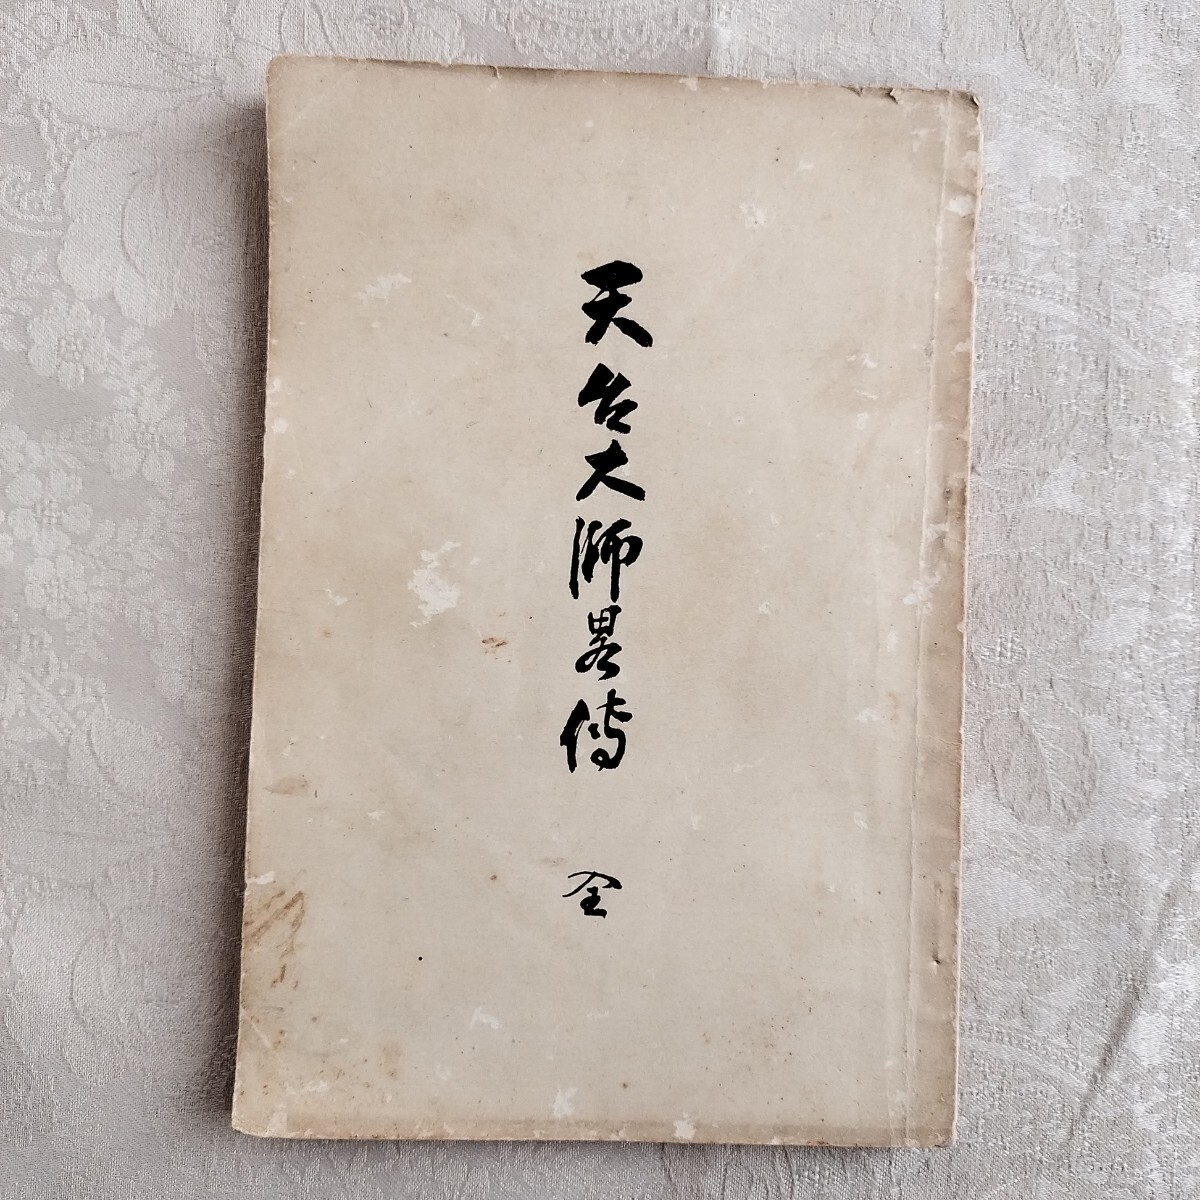 天台大師畧傳
全